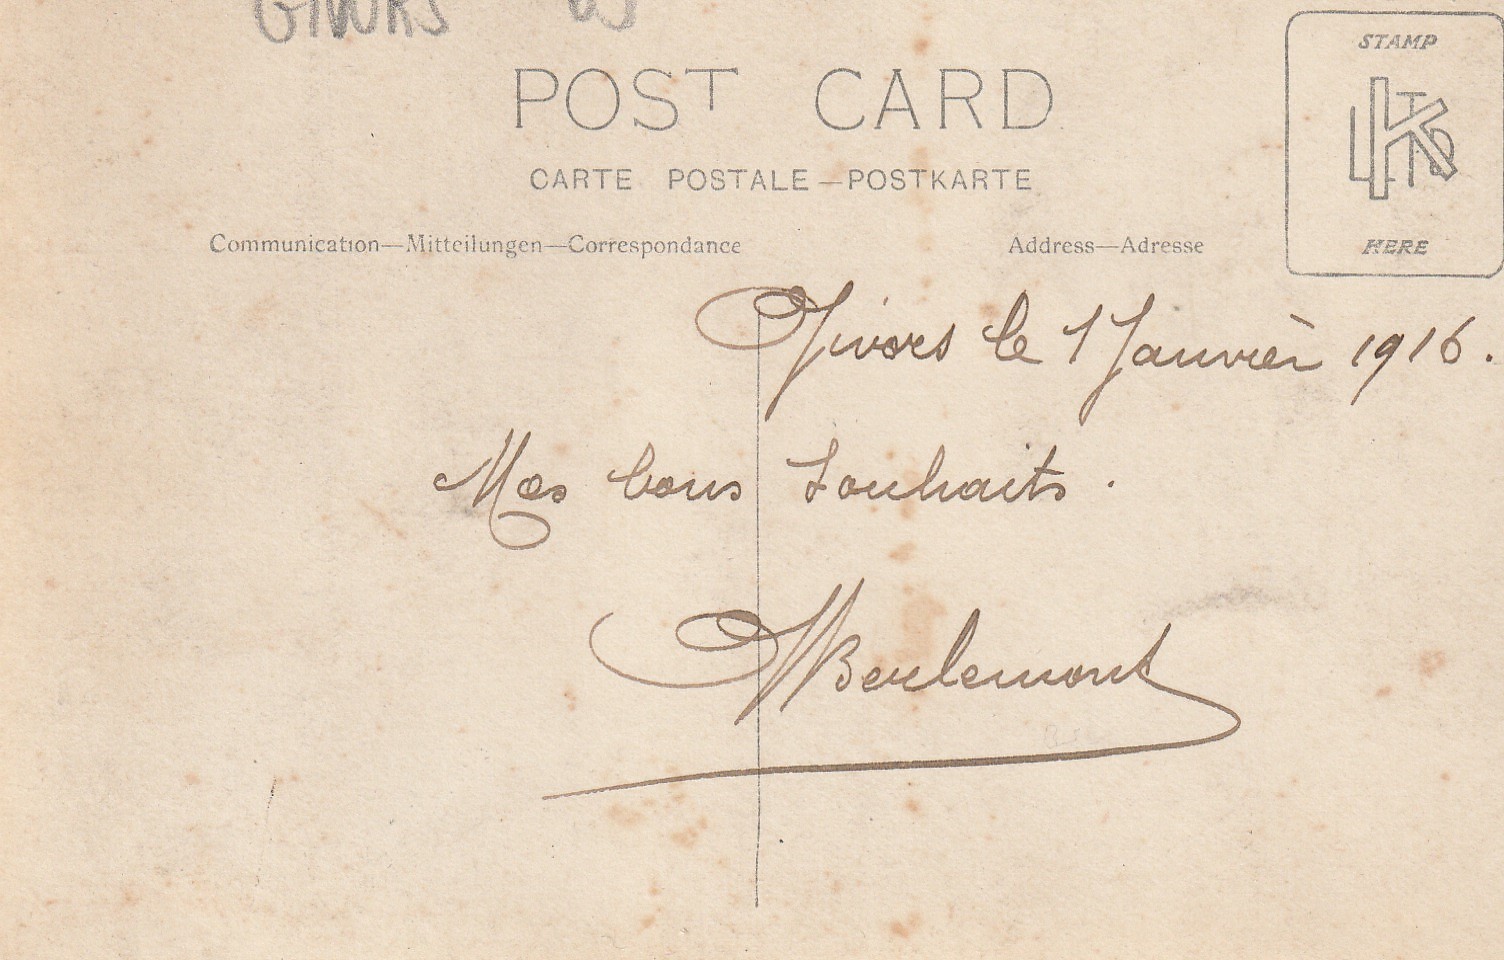 GIVORS
POST CARD
CARTE POSTALE—POSTKARTE
Communication—Mitteilungen—Correspondance
Address—Adresse
STAMP
K LTD
HERE
Givors le 1 Janvier 1916.
Mes bons Souhaits.
Berlemont